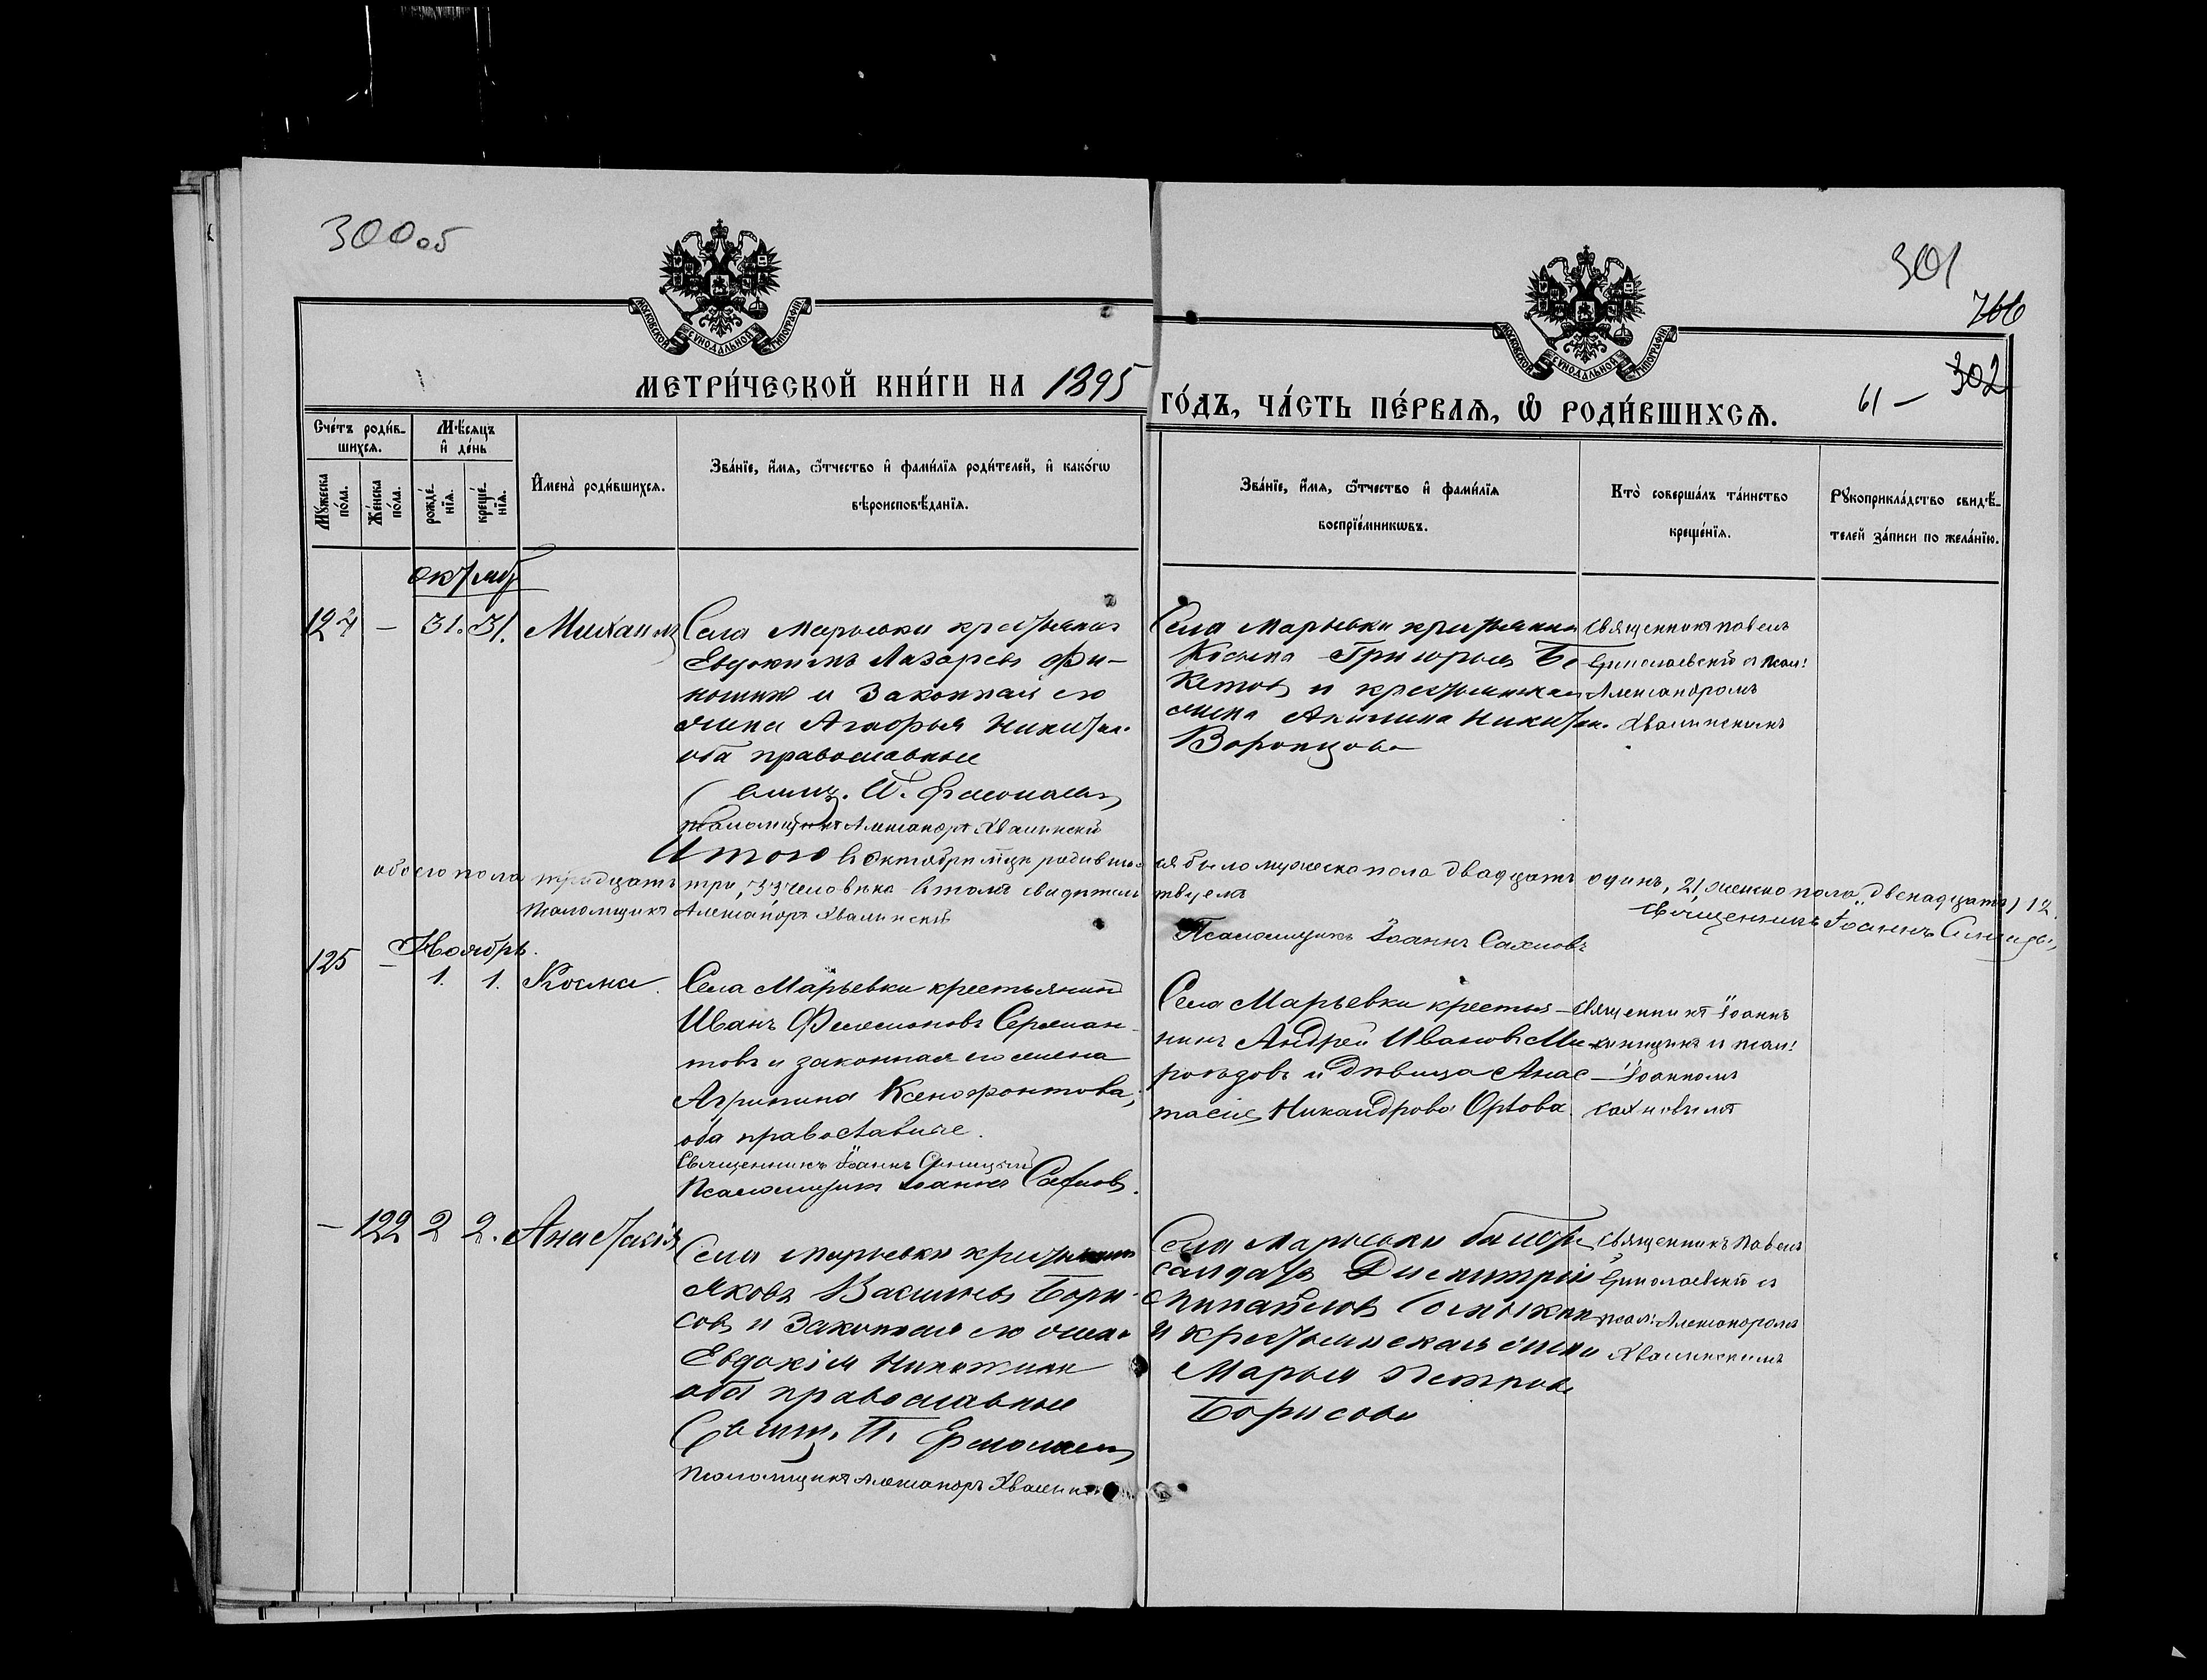 300об
301
766
302
61 —
МОСКОВСКОЙ СѴНОДАЛЬНОЙ ТИПОГРАФІИ
МОСКОВСКОЙ СѴНОДАЛЬНОЙ ТИПОГРАФІИ
МЕТРИ́ЧЕСКОЙ КНИ́ГИ НА 1895
ГО́ДЪ, ЧА́СТЬ ПЕ́РВАЯ, Ѡ РОДИ́ВШИХСЯ.
Сче́тъ роди́в-
шихся.
Мѣ́сяцъ
и де́нь
Му́жеска по́ла.
Же́нска по́ла.
рожде́-
нія.
креще́-
нія.
Имена̀ роди́вшихся.
Зва́ніе, и́мя, ѻ́тчество и фами́лія роди́телей, и како́гѡ
вѣроисповѣ́данія.
Зва́ніе, и́мя, ѻ́тчество и фами́лія
воспріе́мникѡвъ.
Кто̀ соверша́лъ та́инство
креще́нія.
Рукоприкла́дство свидѣ́-
телей за́писи по жела́нію.
октябр
124 — 31. 31. Михаилъ
Села Марьевки крестьянинъ
Евдокимъ Лазаревъ
и законная его
жена Агафья Никит.
оба православные
Свящ. П. Ермолаевъ
Псаломщикъ Александръ Хвалинскій
Села Марьевки крестьянинъ
Косьма Григорьевъ Бе-
кетовъ и крестьянская
жена Акилина Никит.
Воронцова
Священникъ Павелъ
Ермолаевскій съ псал:
Александромъ
Хвалинскимъ
Итого въ октябрѣ м-цѣ родившихся было мужеска пола двадцать одинъ, 21, женска пола двенадцать, 12
обоего пола тридцать три, 33 человѣка въ томъ свидѣтельствуемъ
Псаломщикъ Александръ Хвалинскій
Священникъ Іоаннъ
Псаломщикъ Іоаннъ Сахновъ
Ноябрь.
125 — 1. 1. Косма.
Села Марьевки крестьянинъ
Иванъ Филимоновъ Серман-
товъ и законная его жена
Агрипина Ксенофонтова,
оба православные.
Священникъ Іоаннъ
Псаломщикъ Іоаннъ Сахновъ.
Села Марьевки крестья-
нинъ Андрей Ивановъ Ми-
роѣдовъ и дѣвица Анас-
тасія Никандрова Орлова.
Священникъ Іоаннъ
и псал:
Іоанномъ
Сахновымъ
— 122 2 2. Анастасія
Села Марьевки крестьянинъ
Яковъ Васильевъ Бори-
совъ и законная его жена
Евдокія
оба православные
Свящ. П. Ермолаевъ
Псаломщикъ Александръ Хвалинскій
Села Марьевки
салдатъ Димитрій
Михайловъ
и крестьянская жена
Марья Петрова
Борисова
Священникъ Павелъ
Ермолаевскій съ
псал: Александромъ
Хвалинскимъ